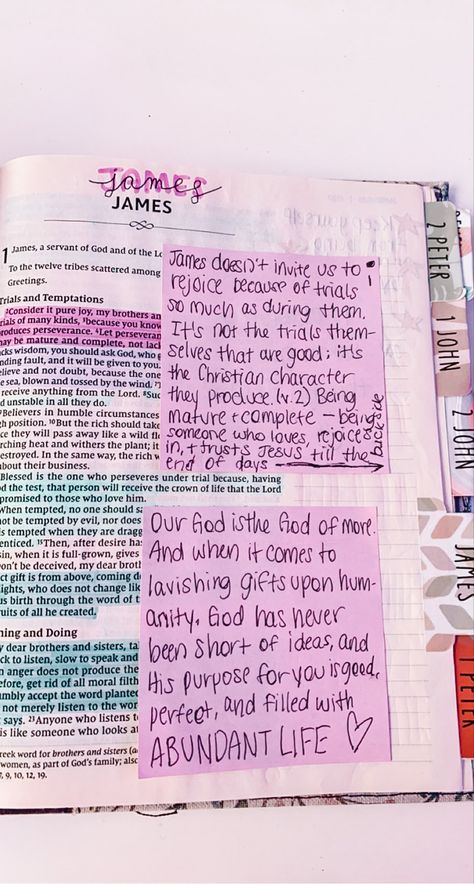 JAMES
james
JAMES
1 James, a servant of God and of the Lo
To the twelve tribes scattered among
Greetings.
Trials and Temptations
2Consider it pure joy, my brothers an
trials of many kinds, 3because you know
produces perseverance. 4Let perseveran
may be mature and complete, not lack
cks wisdom, you should ask God, who g
nding fault, and it will be given to you.
elieve and not doubt, because the one
e sea, blown and tossed by the wind. 7T
receive anything from the Lord. 8Suc
d unstable in all they do.
9Believers in humble circumstances
gh position. 10But the rich should take
ce they will pass away like a wild fl
orching heat and withers the plant; it
estroyed. In the same way, the rich w
bout their business.
Blessed is the one who perseveres under trial because, having
od the test, that person will receive the crown of life that the Lord
promised to those who love him.
When tempted, no one should sa
not be tempted by evil, nor does
is tempted when they are dragg
enticed. 15Then, after desire has
sin, when it is full-grown, gives
on't be deceived, my dear broth
ct gift is from above, coming do
lights, who does not change lik
us birth through the word of t
ruits of all he created.
ning and Doing
y dear brothers and sisters, tak
ck to listen, slow to speak and
n anger does not produce the
efore, get rid of all moral filth
mbly accept the word planted
not merely listen to the wor
says. 23Anyone who listens t
is like someone who looks at
reek word for brothers and sisters (ad
women, as part of God's family; also
7, 9, 10, 12, 19.
James doesn't invite us to
rejoice because of trials
so much as during them.
It's not the trials them-
selves that are good; it's
the Christian character
they produce. (v.2) Being
mature + complete - being
someone who loves, rejoices
in, + trusts Jesus till the
end of days
backside
Our God is the God of more.
And when it comes to
lavishing gifts upon hum-
anity, God has never
been short of ideas, and
His purpose for you is good,
perfect, and filled with
ABUNDANT LIFE ♡
2 PETER
1 JOHN
2 JOHN
JAMES
1 PETER